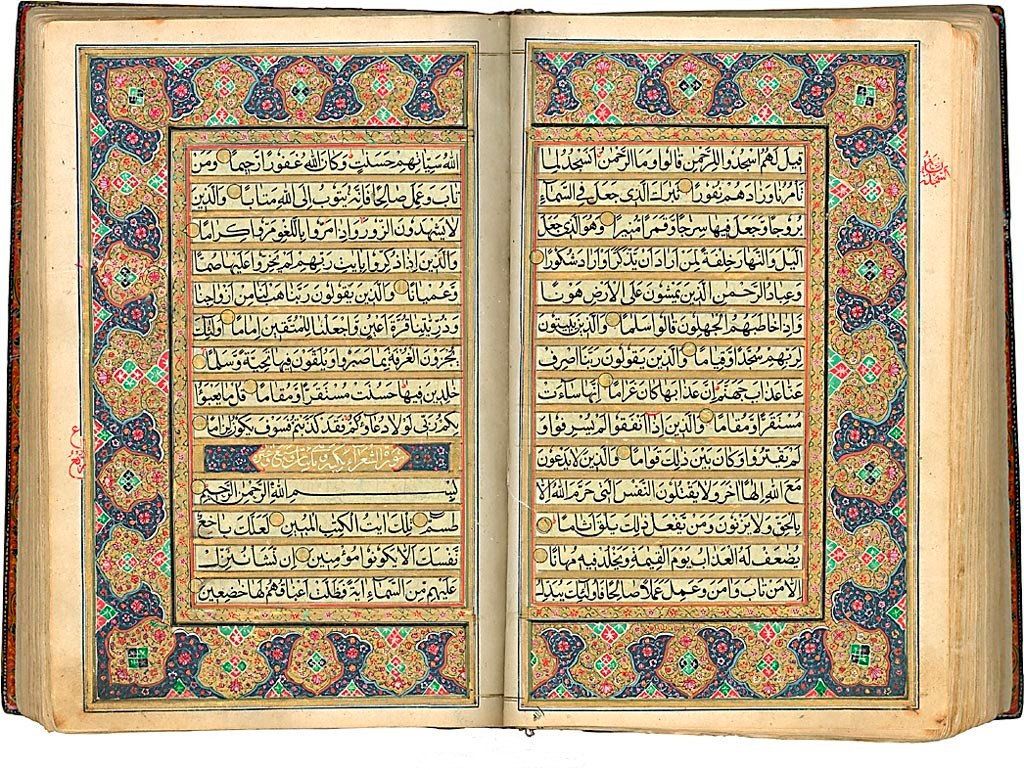 قِيلَ لَهُمُ اسْجُدُوا لِلرَّحْمٰنِ قَالُوا وَمَا الرَّحْمٰنُ أَنَسْجُدُ لِمَا
تَأْمُرُنَا وَزَادَهُمْ نُفُورًا تَبَارَكَ الَّذِي جَعَلَ فِي السَّمَاءِ
بُرُوجًا وَجَعَلَ فِيهَا سِرَاجًا وَقَمَرًا مُنِيرًا وَهُوَ الَّذِي جَعَلَ
الَّيْلَ وَالنَّهَارَ خِلْفَةً لِمَنْ أَرَادَ أَنْ يَذَّكَّرَ أَوْ أَرَادَ شُكُورًا
وَعِبَادُ الرَّحْمٰنِ الَّذِينَ يَمْشُونَ عَلَى الْأَرْضِ هَوْنًا
وَإِذَا خَاطَبَهُمُ الْجٰهِلُونَ قَالُوا سَلٰمًا وَالَّذِينَ يَبِيتُونَ
لِرَبِّهِمْ سُجَّدًا وَقِيَامًا وَالَّذِينَ يَقُولُونَ رَبَّنَا اصْرِفْ
عَنَّا عَذَابَ جَهَنَّمَ إِنَّ عَذَابَهَا كَانَ غَرَامًا إِنَّهَا سَاءَتْ
مُسْتَقَرًّا وَمُقَامًا وَالَّذِينَ إِذَا أَنْفَقُوا لَمْ يُسْرِفُوا وَ
لَمْ يَقْتُرُوا وَكَانَ بَيْنَ ذٰلِكَ قَوَامًا وَالَّذِينَ لَا يَدْعُونَ
مَعَ اللّٰهِ إِلٰهًا آخَرَ وَلَا يَقْتُلُونَ النَّفْسَ الَّتِي حَرَّمَ اللّٰهُ إِلَّا
بِالْحَقِّ وَلَا يَزْنُونَ وَمَنْ يَفْعَلْ ذٰلِكَ يَلْقَ أَثَامًا
يُضٰعَفْ لَهُ الْعَذَابُ يَوْمَ الْقِيٰمَةِ وَيَخْلُدْ فِيهِ مُهَانًا
إِلَّا مَنْ تَابَ وَآمَنَ وَعَمِلَ عَمَلًا صَالِحًا فَأُولٰئِكَ يُبَدِّلُ
اللّٰهُ سَيِّئَاتِهِمْ حَسَنٰتٍ وَكَانَ اللّٰهُ غَفُورًا رَحِيمًا وَمَنْ
تَابَ وَعَمِلَ صَالِحًا فَإِنَّهُ يَتُوبُ إِلَى اللّٰهِ مَتَابًا وَالَّذِينَ
لَا يَشْهَدُونَ الزُّورَ وَإِذَا مَرُّوا بِاللَّغْوِ مَرُّوا كِرَامًا
وَالَّذِينَ إِذَا ذُكِّرُوا بِآيٰتِ رَبِّهِمْ لَمْ يَخِرُّوا عَلَيْهَا صُمًّا
وَعُمْيَانًا وَالَّذِينَ يَقُولُونَ رَبَّنَا هَبْ لَنَا مِنْ أَزْوَاجِنَا
وَذُرِّيّٰتِنَا قُرَّةَ أَعْيُنٍ وَاجْعَلْنَا لِلْمُتَّقِينَ إِمَامًا أُولٰئِكَ
يُجْزَوْنَ الْغُرْفَةَ بِمَا صَبَرُوا وَيُلَقَّوْنَ فِيهَا تَحِيَّةً وَسَلٰمًا
خٰلِدِينَ فِيهَا حَسُنَتْ مُسْتَقَرًّا وَمُقَامًا قُلْ مَا يَعْبَؤُا
بِكُمْ رَبِّي لَوْلَا دُعَاؤُكُمْ فَقَدْ كَذَّبْتُمْ فَسَوْفَ يَكُونُ لِزَامًا
بِسْمِ اللّٰهِ الرَّحْمٰنِ الرَّحِيمِ
طٰسٓمٓ تِلْكَ آيٰتُ الْكِتٰبِ الْمُبِينِ لَعَلَّكَ بَاخِعٌ
نَفْسَكَ أَلَّا يَكُونُوا مُؤْمِنِينَ إِنْ نَشَأْ نُنَزِّلْ
عَلَيْهِمْ مِنَ السَّمَاءِ آيَةً فَظَلَّتْ أَعْنَاقُهُمْ لَهَا خٰضِعِينَ